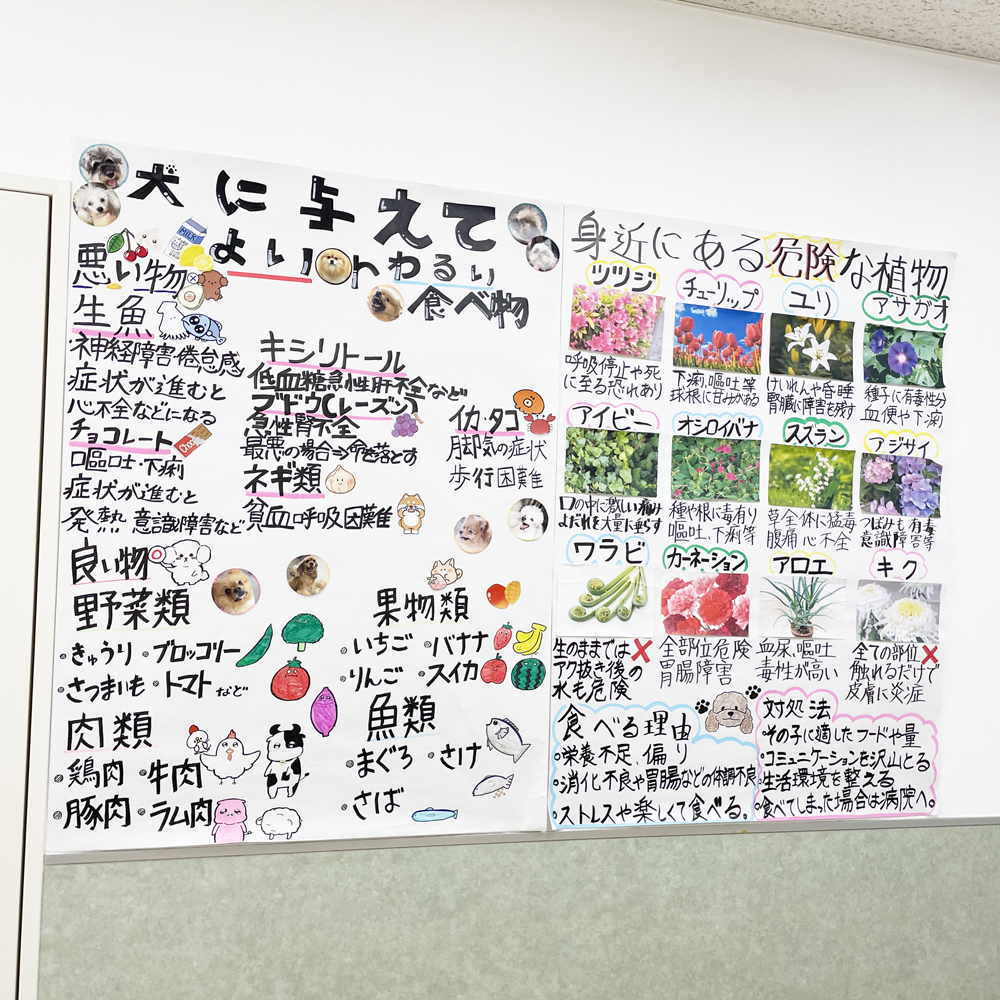 犬に与えて
よいわわるい
食べ物
MILK
悪い物
生魚
・神経障害倦怠感
症状が進むと
心不全などになる
チョコレート
Choco
口嘔吐・下痢
症状が進むと
発熱 意識障害など
キシリトール
低血糖急性肝不全など
ブドウ(レーズン)
急性腎不全
最悪の場合⇒命を落とす
ネギ類
貧血呼吸困難
イカ・タコ
脚気の症状
歩行困難
良い物
野菜類
・きゅうり・ブロッコリー
・さつまいも・トマトなど
果物類
・いちご・バナナ
・りんご・スイカ
肉類
・鶏肉・牛肉
・豚肉・ラム肉
魚類
・まぐろ・さけ
・さば
身近にある危険な植物
ツツジ
呼吸停止や死
に至る恐れあり
チューリップ
下痢、嘔吐等
球根に苦みがある
ユリ
けいれんや昏睡
腎臓に障害も残す
アサガオ
種子に有毒性分
血便や下痢
アイビー
口の中に激しい痛み
よだれを大量に垂らす
オシロイバナ
種や根に毒有り
嘔吐、下痢等
スズラン
草全体に猛毒
腹痛心不全
アジサイ
つぼみも有毒
意識障害等
ワラビ
生のままでは❌
アク抜き後の
水も危険
カーネーション
全部位危険
胃腸障害
アロエ
血尿、嘔吐
毒性が高い
キク
全ての部位❌
触れるだけで
皮膚に炎症
食べる理由
・栄養不足、偏り
・消化不良や胃腸などの体調不良
・ストレスや楽しくて食べる。
対処法
・その子に適したフードや量
・コミュニケーションを沢山とる
・生活環境を整える
・食べてしまった場合は病院へ。